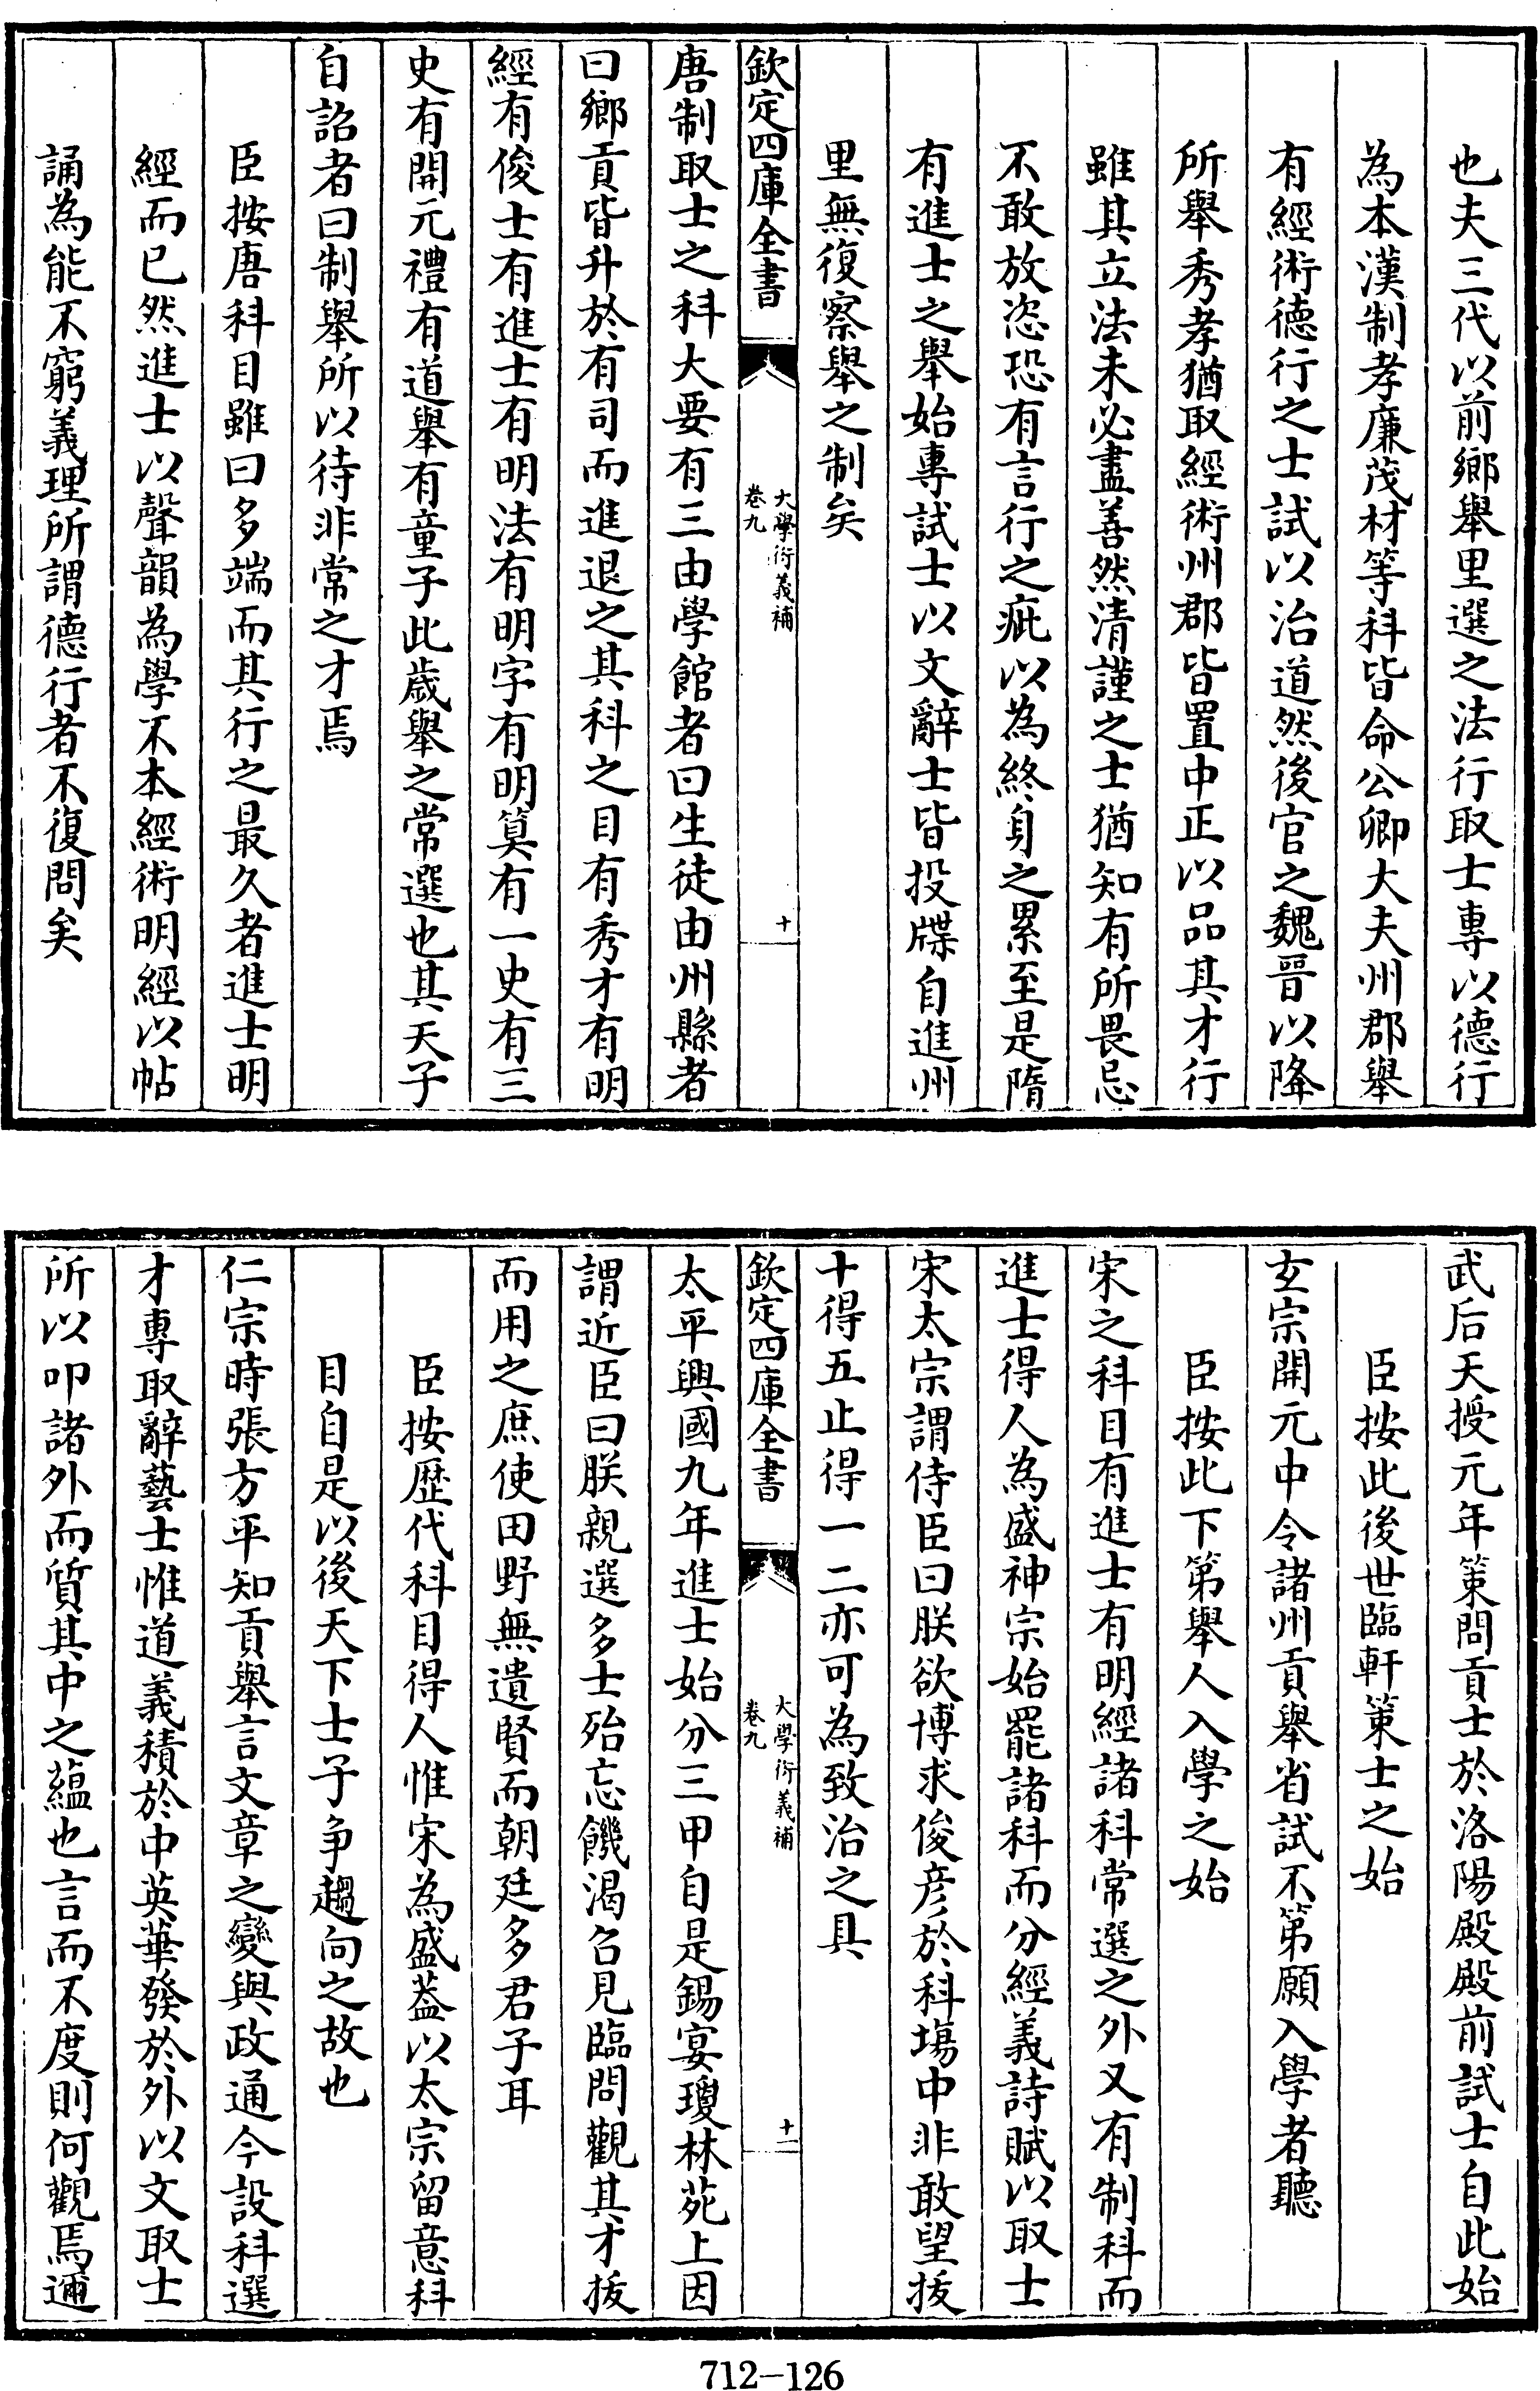 也夫三代以前鄉舉里選之法行取士専以德行
為本漢制孝廉茂材等科皆命公卿大夫州郡舉
有經術德行之士試以治道然後官之魏晉以降
所舉秀孝猶取經術州郡皆置中正以品其才行
雖其立法未必盡善然清謹之士猶知有所畏忌
不敢放恣恐有言行之疵以為終身之累至是隋
有進士之舉始専試士以文辭士皆投牒自進州
里無復察舉之制矣
欽定四庫全書
大學衍義補
卷九
十
唐制取士之科大要有三由學館者曰生徒由州縣者
曰鄉貢皆升於有司而進退之其科之目有秀才有明
經有俊士有進士有明法有明字有明筭有一史有三
史有開元禮有道舉有童子此歲舉之常選也其天子
自詔者曰制舉所以待非常之才焉
臣按唐科目雖曰多端而其行之最久者進士明
經而已然進士以聲韻為學不本經術明經以帖
誦為能不窮義理所謂德行者不復問矣
武后天授元年策問貢士於洛陽殿殿前試士自此始
臣按此後世臨軒策士之始
玄宗開元中令諸州貢舉省試不第願入學者聽
臣按此下第舉人入學之始
宋之科目有進士有明經諸科常選之外又有制科而
進士得人為盛神宗始罷諸科而分經義詩賦以取士
宋太宗謂侍臣曰朕欲博求俊彦於科塲中非敢望拔
十得五止得一二亦可為致治之具
欽定四庫全書
大學衍義補
卷九
十一
太平興國九年進士始分三甲自是錫宴瓊林苑上因
謂近臣曰朕親選多士殆忘饑渴召見臨問觀其才拔
而用之庶使田野無遺賢而朝廷多君子耳
臣按歴代科目得人惟宋為盛葢以太宗留意科
目自是以後天下士子争趨向之故也
仁宗時張方平知貢舉言文章之變與政通今設科選
才専取辭藝士惟道義積於中英華發於外以文取士
所以叩諸外而質其中之蘊也言而不度則何觀焉邇
712-126